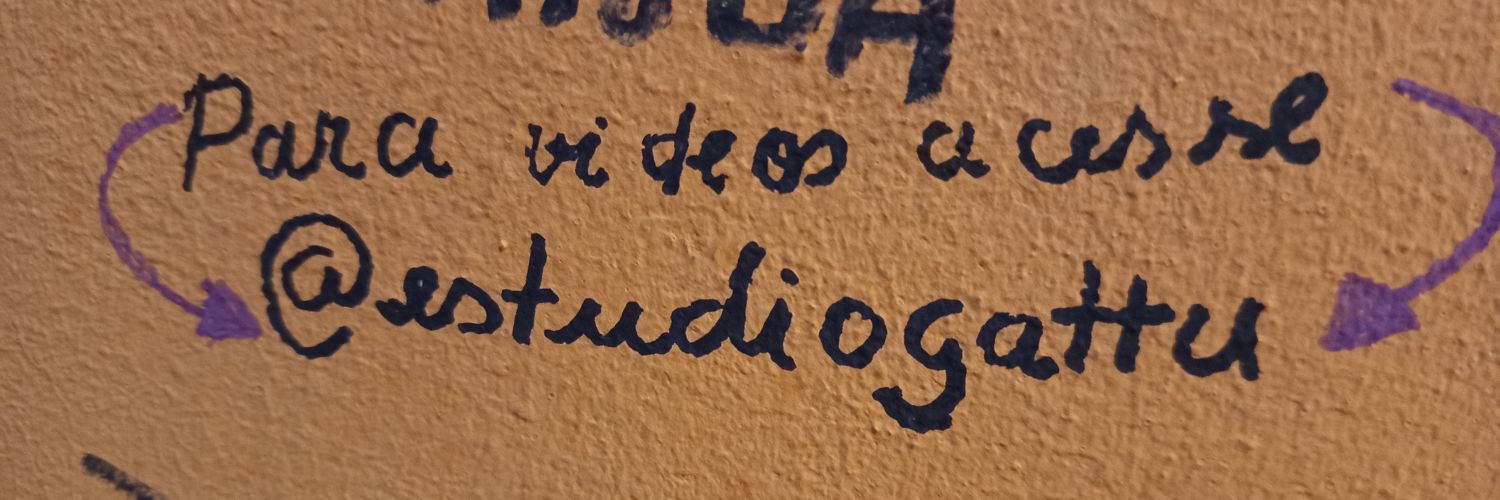 Para videos acesse
@estudiogattu